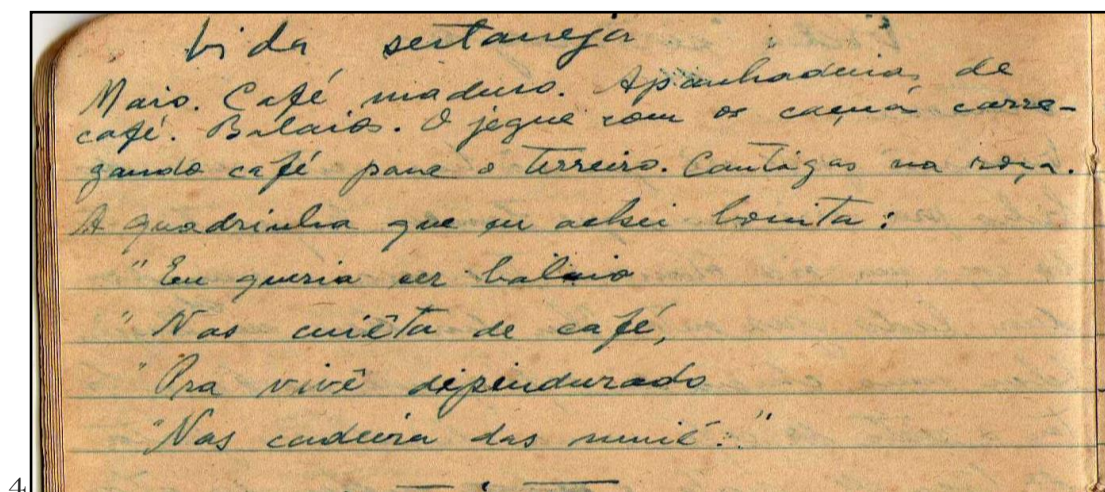 Vida sertaneja
Maio. Café maduro. Apanhadeiras de
café. Balaios. O jegue com os caçuá carre-
gando café para o terreiro. Cantigas na roça.
A quadrinha que eu achei bonita:
"Eu queria ser balaio
"Nas cuiêta de café,
"Pra vivê dipindurado
"Nas cadeira das muié."
4